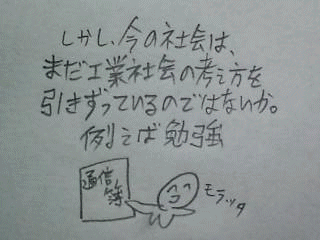 しかし、今の社会は、
まだ工業社会の考え方を
引きずっているのではないか。
例えば勉強
通信簿
モラッタ